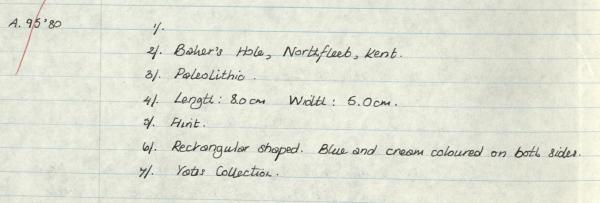 A. 95'80
1/.
2/. Baker's Hole, Northfleet, Kent.
3/. Paleolithic.
4/. Length: 8.0cm Width: 5.0cm.
5/. Flint.
6/. Rectangular shaped. Blue and cream coloured on both sides.
7/. Collection.